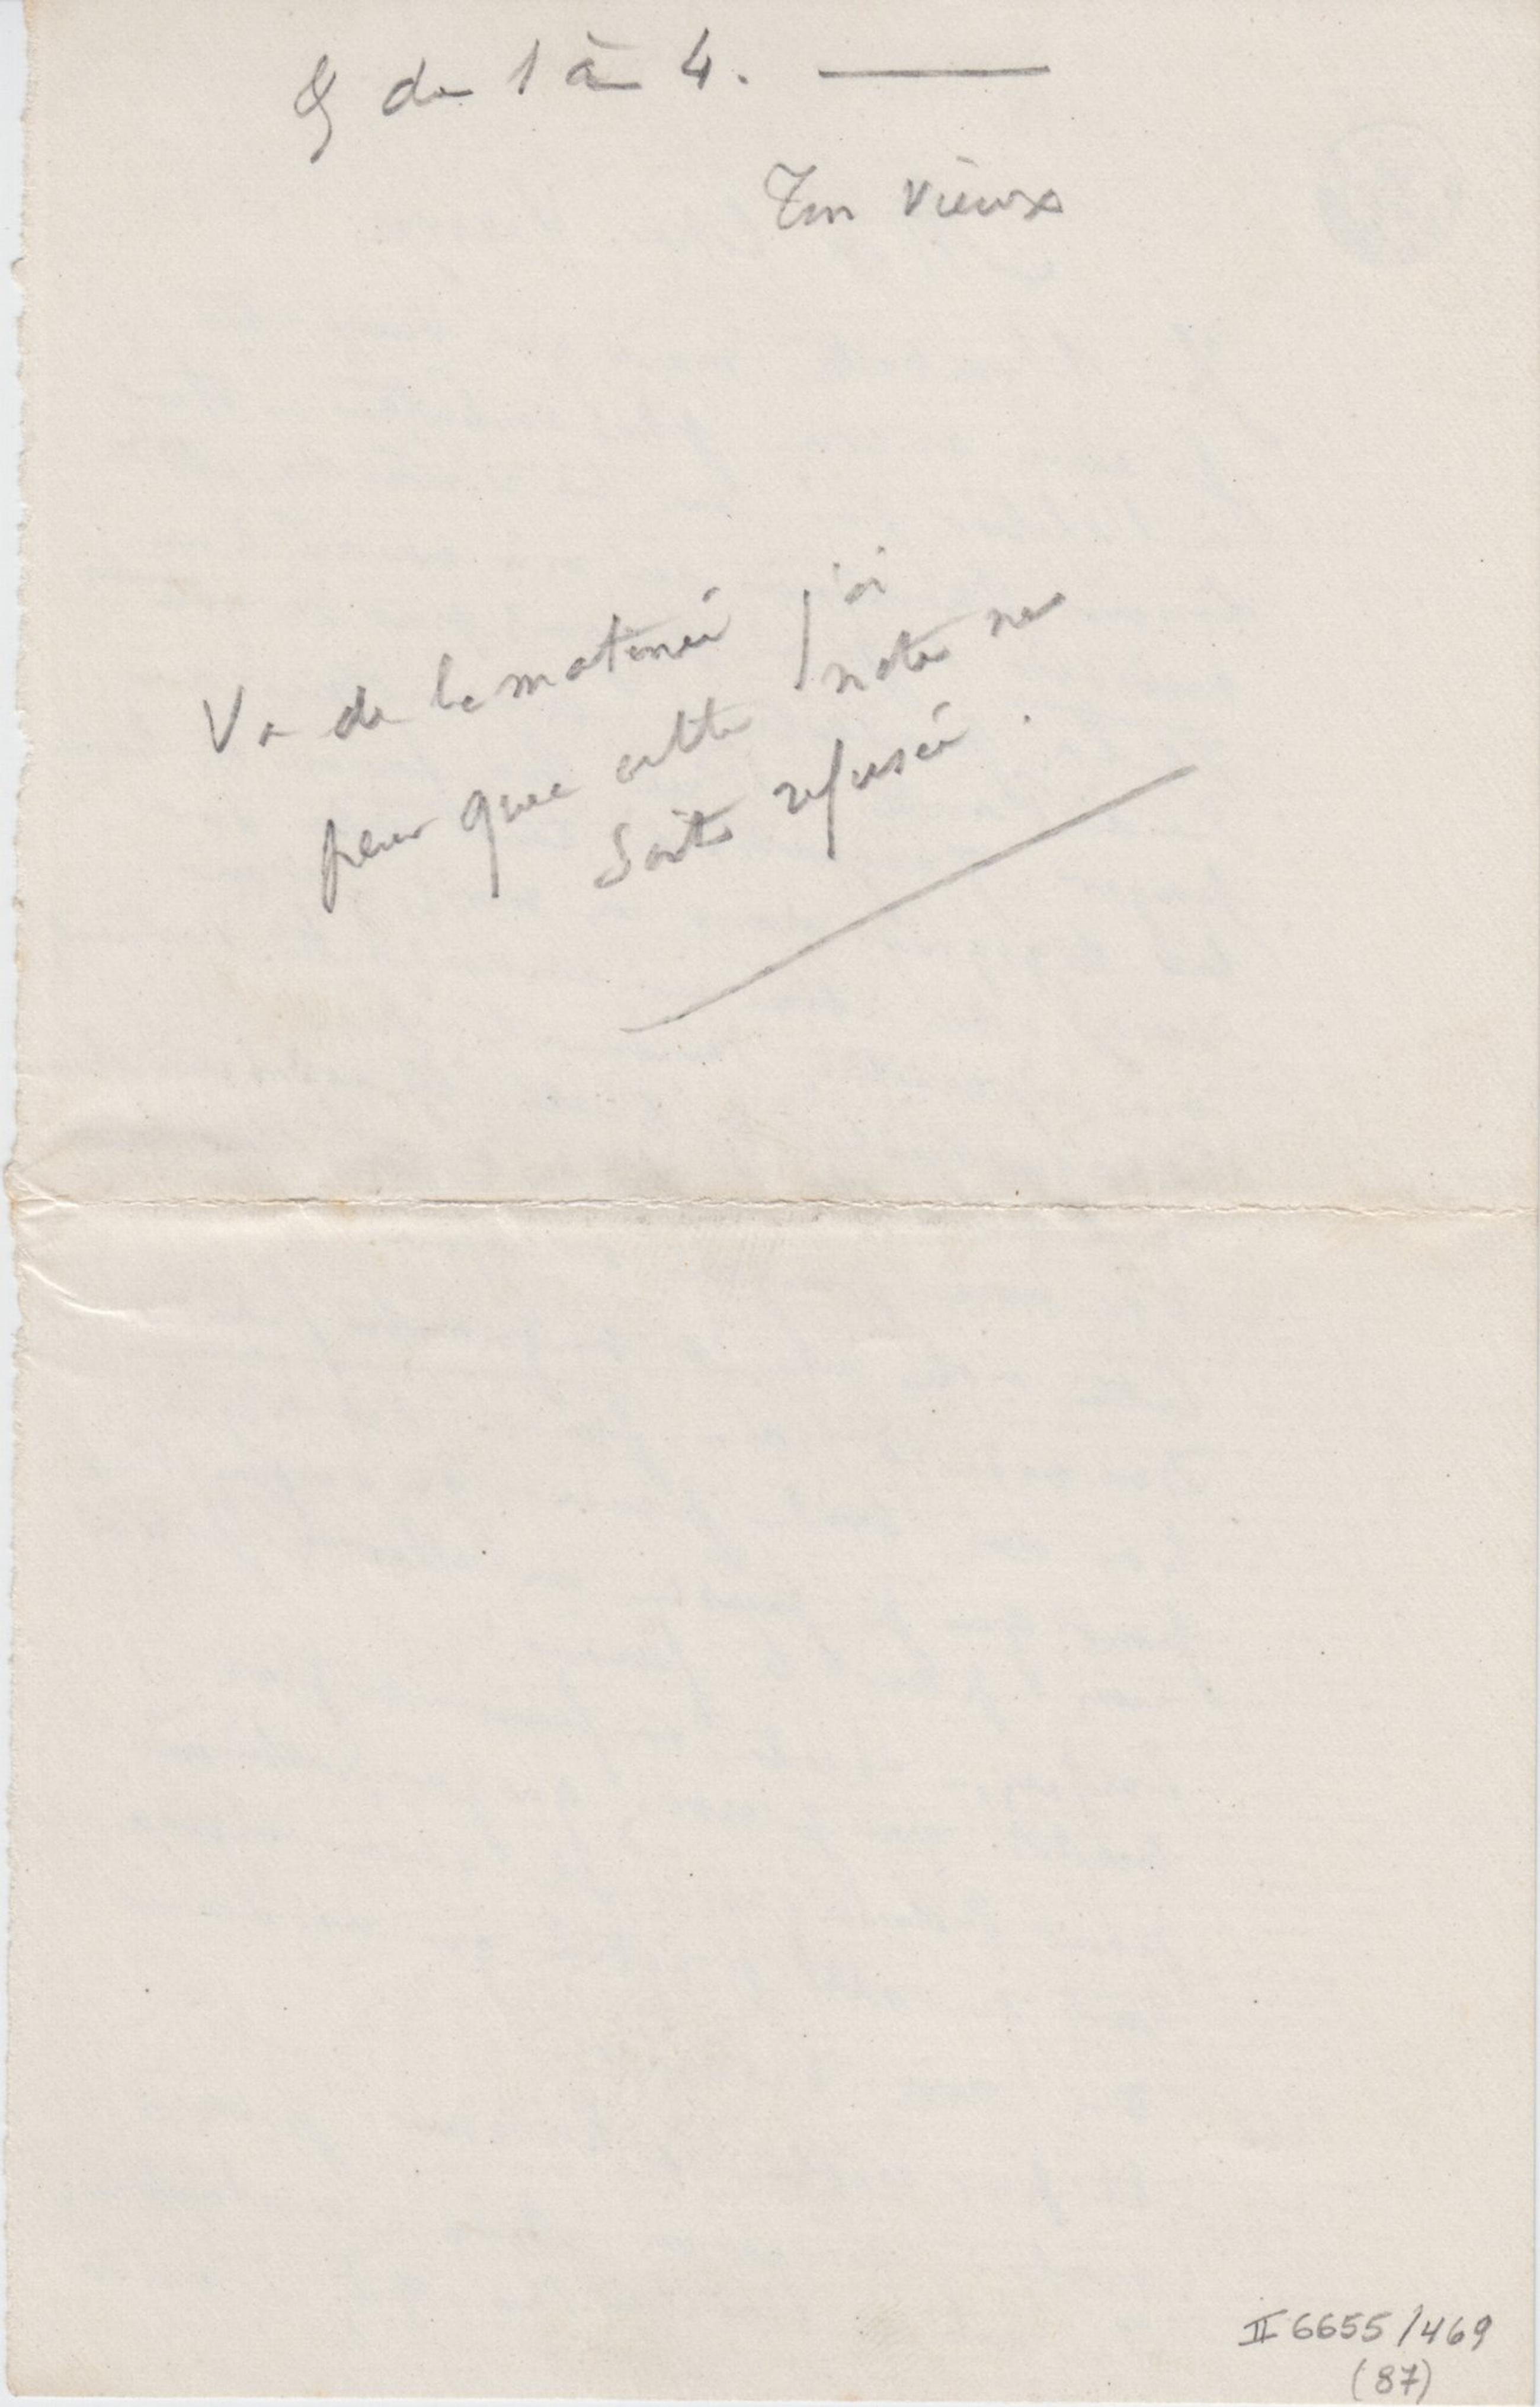 & de 1 à 4. ———
Ton vieux
Va de la matinée j'ai
peur que cette note ne
soit refusée.
II 6655/469
(87)